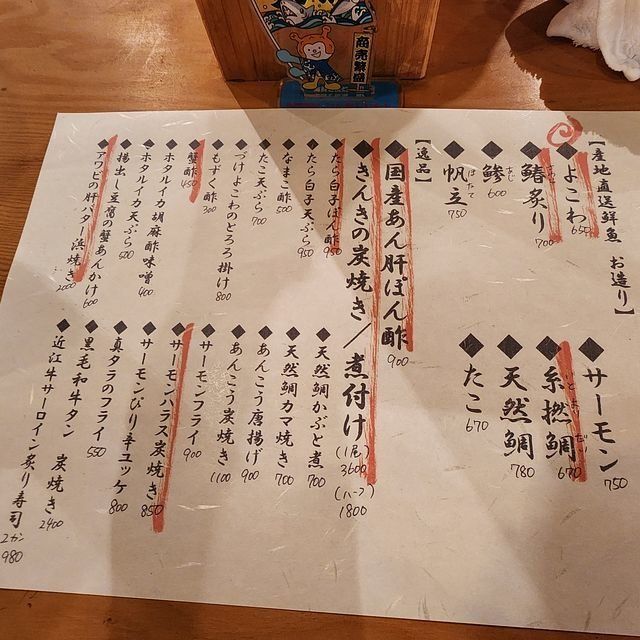 商売繁盛
【産地直送鮮魚 お造り】
◆よこわ 650
◆鰆炙り 700
◆鯵 600
◆帆立 750
ほたて
◆サーモン 750
◆糸撚鯛 670
いとよりだい
◆天然鯛 780
◆たこ 670
【逸品】
◆国産あん肝ぽん酢 900
◆きんきの炭焼き/煮付け (1尾) 3600 (ハーフ) 1800
◆たら白子ぽん酢 950
◆たら白子天ぷら 950
◆なまこ酢 500
◆たこ天ぷら 700
◆づけよこわのとろろ掛け 800
◆もずく酢 300
◆蟹酢 450
◆ホタルイカ胡麻酢味噌 400
◆ホタルイカ天ぷら 500
◆揚出し豆腐の蟹あんかけ 600
◆アワビの肝バター浜焼き 2000
◆天然鯛かぶと煮 700
◆天然鯛カマ焼き 700
◆あんこう唐揚げ 900
◆あんこう炭焼き 1100
◆サーモンフライ 900
◆サーモンハラス炭焼き 850
◆サーモンぴり辛ユッケ 800
◆真タラのフライ 550
◆黒毛和牛タン 炭焼き 2400
◆近江牛サーロイン炙り寿司 2カン 980